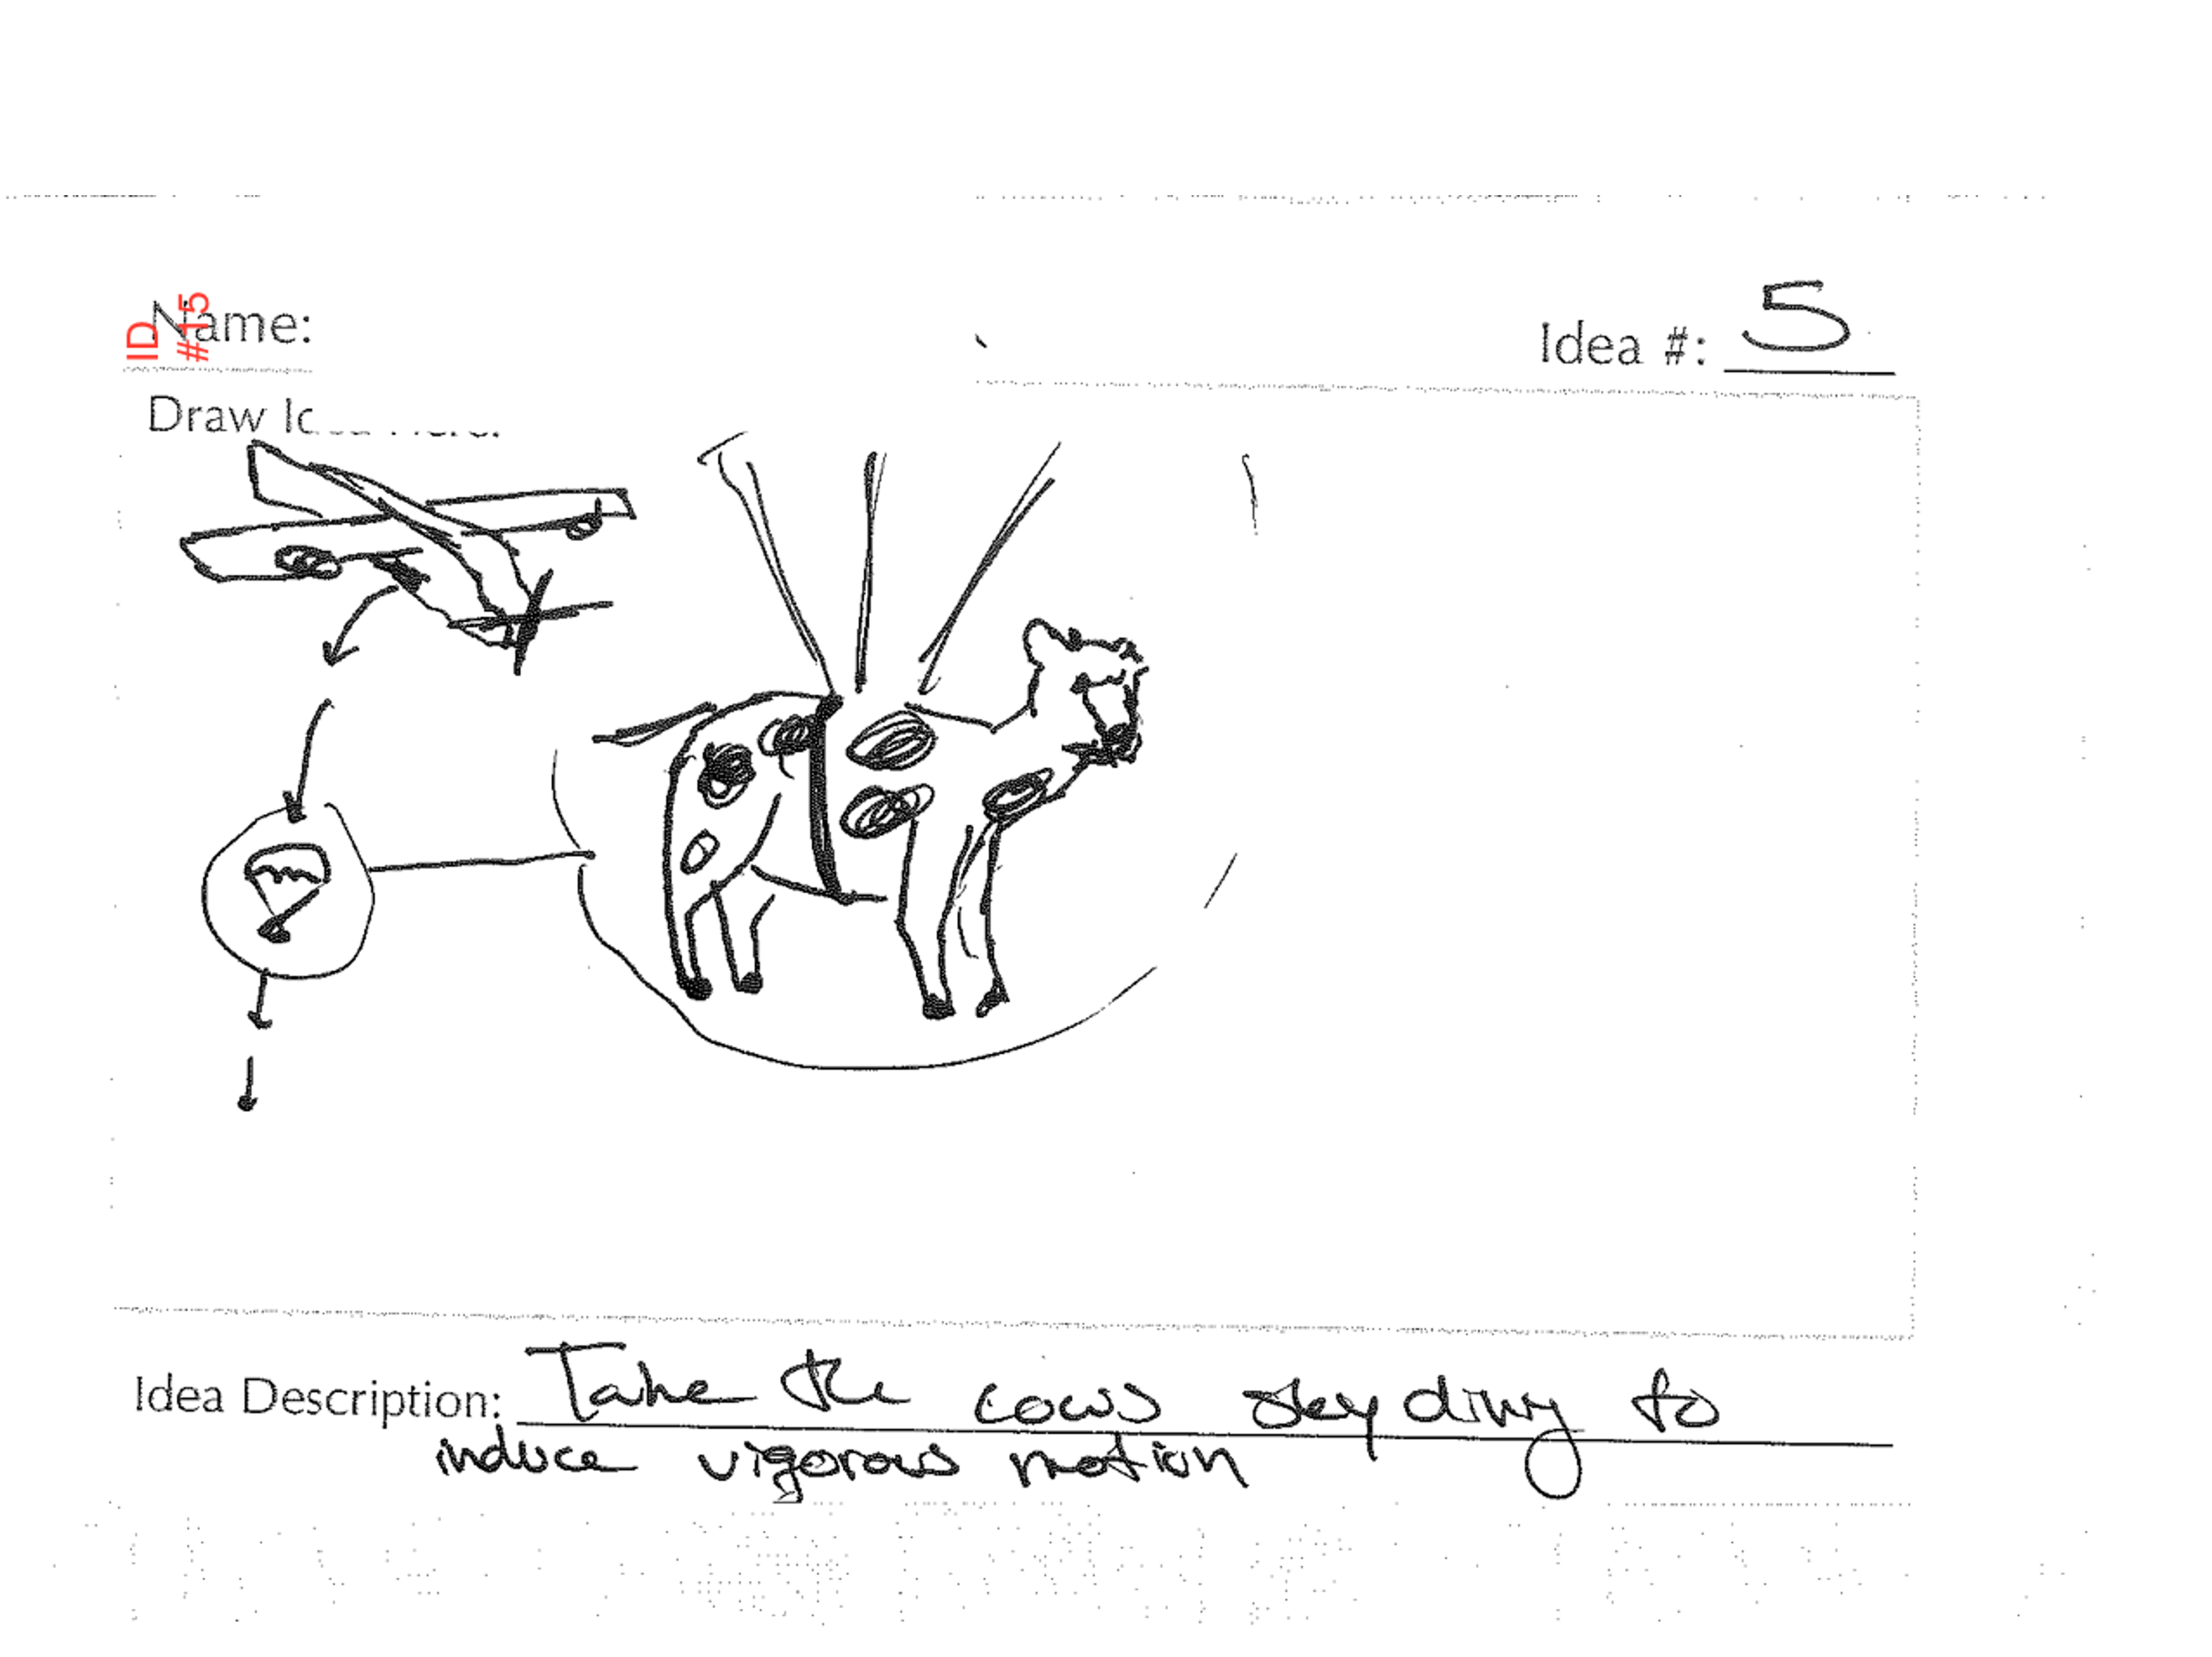 ID
#15
Name:
Idea #: 5
Draw
Idea Description: Take the cows skydiving to
induce vigorous motion